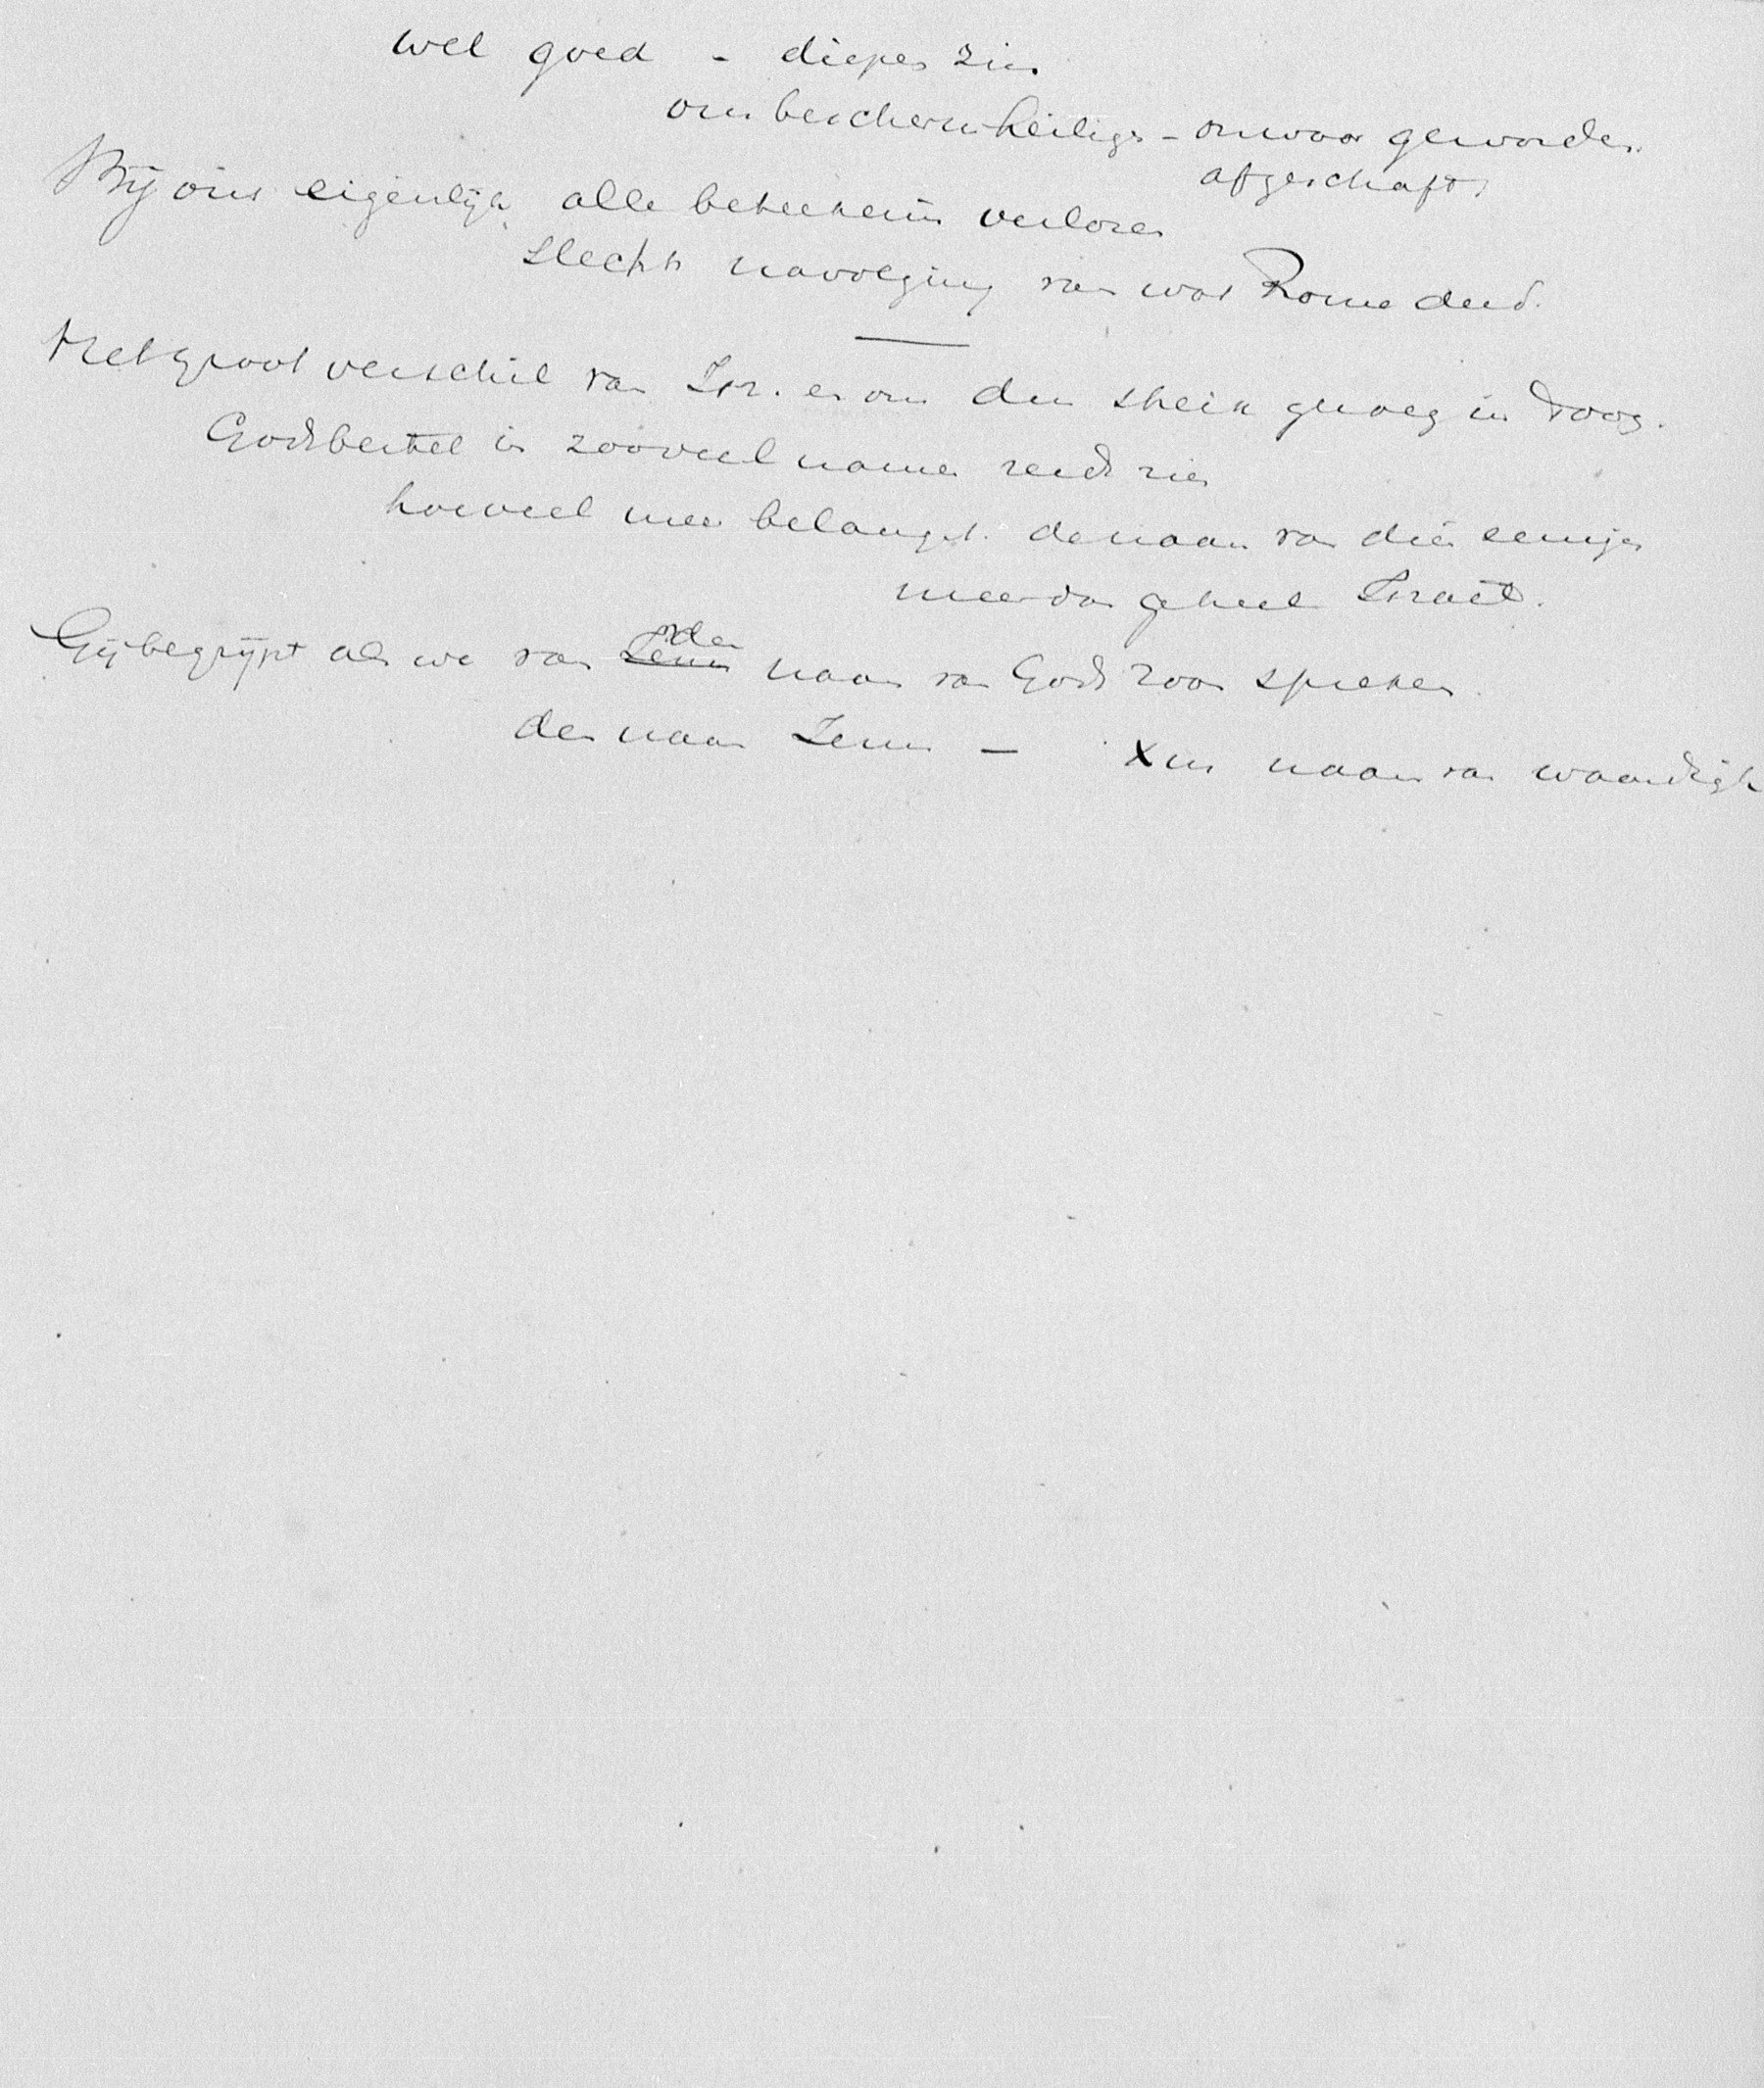 wel goed - diepen zin.
om beschermheilige - onwaar geworden.
afgeschaft.
Bij ons eigenlijk alle beteekenis verloren
slechts navolging van wat Rome deed.
Het groot verschil van Isr. en ons den steek genoeg in 't oog.
Godsbestel in zooveel namen reeds zien
hoeveel meer belangr. de naam van dien eenigen
meer dan geheel Israël.
Gij begrijpt als we van Jezus den naam van Gods zoon spreken
den naam Jezus - Xus naam van waardigh